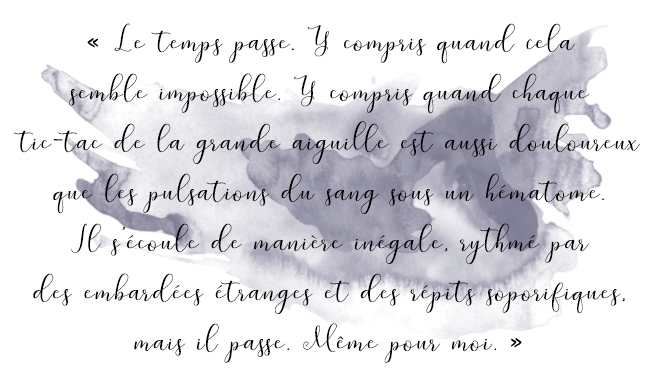 « Le temps passe. Y compris quand cela
semble impossible. Y compris quand chaque
tic-tac de la grande aiguille est aussi douloureux
que les pulsations du sang sous un hématome.
Il s'écoule de manière inégale, rythmé par
des embardées étranges et des répits soporifiques,
mais il passe. Même pour moi. »